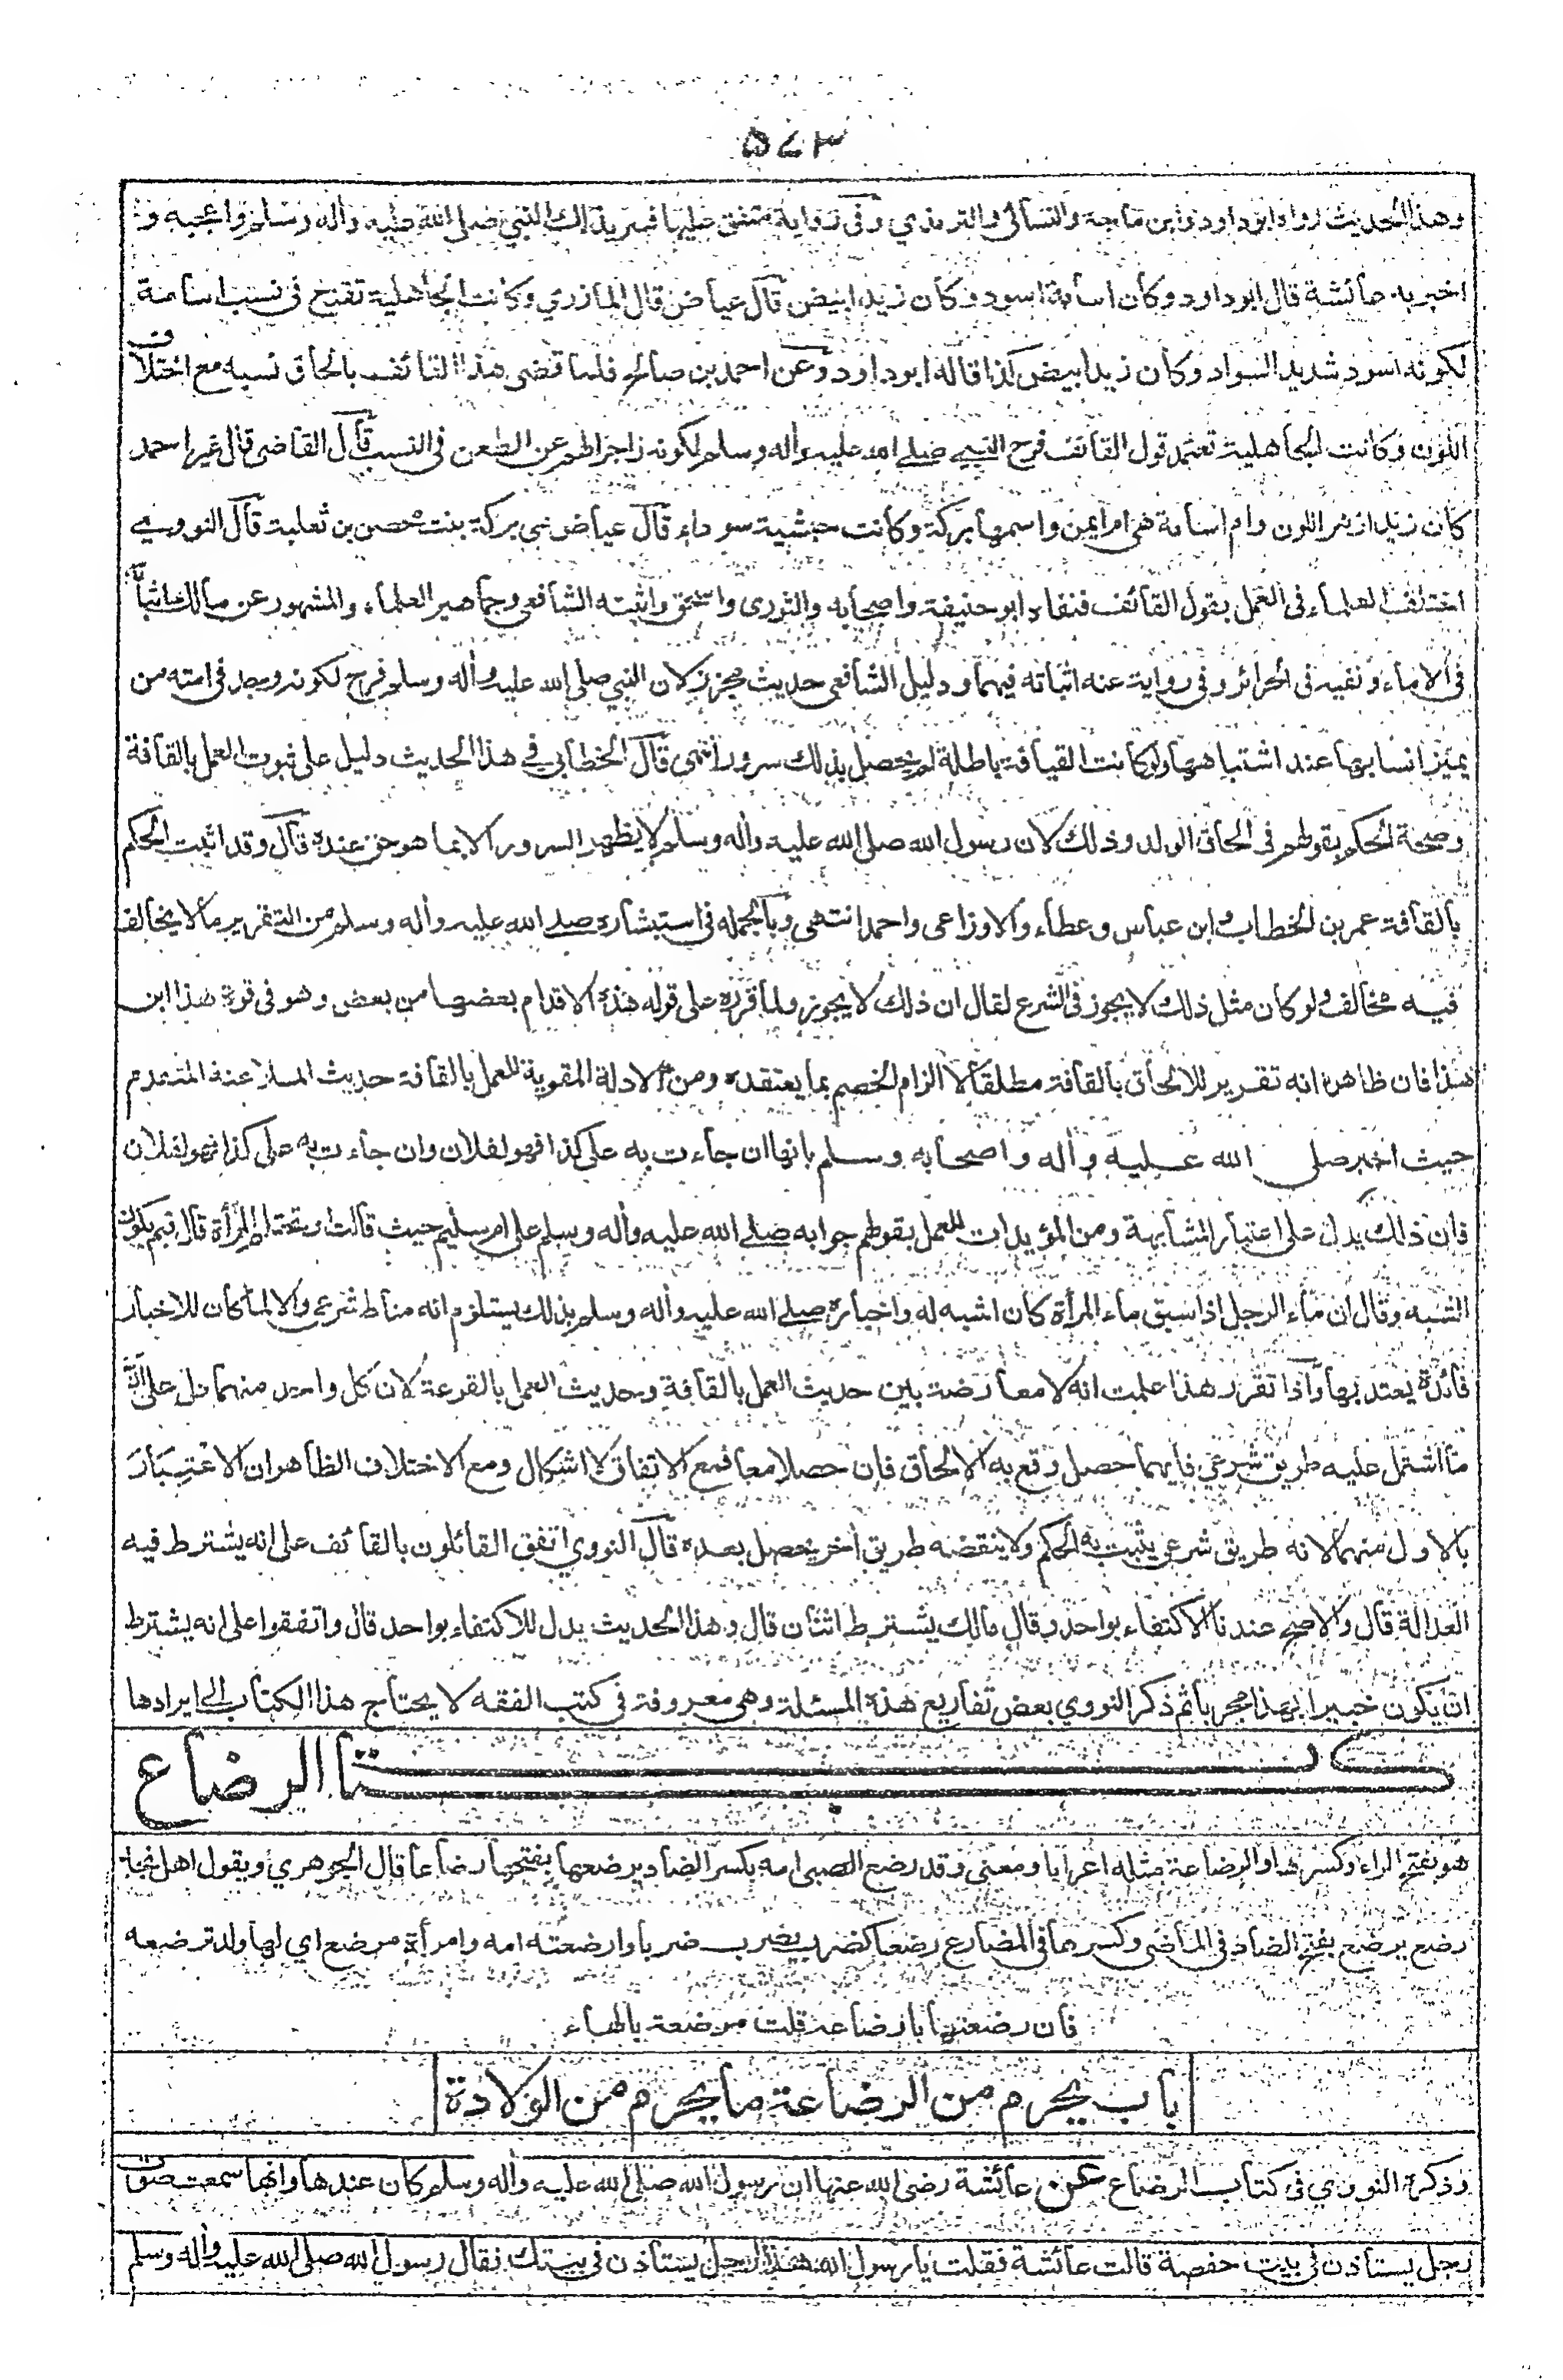 ٥٧٣
وهذا الحديث رواه ابو داود وابن ماجة والنسائى والترمذي وفى رواية متفق عليها فسر بذلك النبي صلى الله عليه وأله وسلم واعجبه و
اخبر به عائشة قال ابو داود وكان اسامة اسود وكان زيد ابيض قال عياض قال المازري وكانت الجاهلية تقدح فى نسب اسامة
لكونه اسود شديد السواد وكان زيد ابيض كذا قاله ابو داود وعن احمد بن صالح فلما قضى هذا القائف بالحاق نسبه مع اختلاف
اللون وكانت الجاهلية تعتمد قول القائف فرح النبي صلے الله عليه وأله وسلم لكونه زاجرا لهم عن الطعن فى النسب قال القاضى قال غير احمد
كان زيد ازهر اللون وام اسامة هى ام ايمن واسمها بركة وكانت حبشية سوداء قال عياض هى بركة بنت محصن بن ثعلبة قال النووي
اختلف العلماء فى العمل بقول القائف فنفاه ابو حنيفة واصحابه والثورى واسحق واثبته الشافعى وجماهير العلماء والمشهور عن مالك اثباته
فى الاماء ونفيه فى الحرائر وفى رواية عنه اثباته فيهما ودليل الشافعى حديث مجزز لان النبي صلى الله عليه وأله وسلم فرح لكونه وجد فى امته من
يميز انسابها عند اشتباهها ولو كانت القيافة باطلة لم يحصل بذلك سرور انتهى قال الخطابي فى هذا الحديث دليل على ثبوت العمل بالقافة
وصحة الحكم بقولهم فى الحاق الولد وذلك لان رسول الله صلى الله عليه وأله وسلم لا يظهر السرور الا بما هو حق عنده قال وقد اثبت الحكم
بالقافة عمر بن الخطاب وابن عباس وعطاء والاوزاعى واحمد انتهى وبالجمله فى استبشاره صلے الله عليه وأله وسلم من التقرير ما لا يخالف
فيه مخالف ولو كان مثل ذلك لا يجوز فى الشرع لقال ان ذلك لا يجوز ولما قرره على قوله هذه الاقدام بعضها من بعض وهو فى قوة هذا ابن
هذا فان ظاهره انه تقرير للالحاق بالقافة مطلقا لا الزام الخصم بما يعتقده ومن الادلة المقوية للعمل بالقافة حديث الملاعنة المتقدم
حيث اخبر صلى الله عليه وأله واصحابه وسلم بانها ان جاءت به على كذا فهو لفلان وان جاءت به على كذا فهو لفلان
فان ذلك يدل على اعتبار المشابهة ومن المؤيدات للعمل بقولهم جوابه صلے الله عليه وأله وسلم على ام سليم حيث قالت اوتحتلم المرأة قال فبم يكون
الشبه وقال ان ماء الرجل اذا سبق ماء المرأة كان الشبه له واخباره صلے الله عليه وأله وسلم بذلك يستلزم انه مناط شرعى والا لما كان للاخبار
فائدة يعتد بها واذا تقرر هذا علمت انه لا معارضة بين حديث العمل بالقافة وحديث العمل بالقرعة لان كل واحد منهما دل على ان
ما اشتمل عليه طريق شرعي فايهما حصل وقع به الالحاق فان حصلا معا فمع الاتفاق لا اشكال ومع الاختلاف الظاهر ان الاعتبار
بالاول منهما لانه طريق شرعي يثبت به الحكم ولا ينقضه طريق أخر يحصل بعده قال النووي اتفق القائلون بالقائف على انه يشترط فيه
العدالة قال والاصح عندنا الاكتفاء بواحد وقال مالك يشترط اثنان قال وهذا الحديث يدل للاكتفاء بواحد قال واتفقوا على انه يشترط
ان يكون خبيرا بهذا مجربا ثم ذكر النووي بعض تفاريع هذه المسئلة وهى معروفة فى كتب الفقه لا يحتاج هذا الكتاب الى ايرادها
كتاب الرضاع
هو بفتح الراء وكسرها والرضاعة مثله اعرابا ومعنى وقد رضع الصبى امه بكسر الضاد يرضعها بفتحها رضاعا قال الجوهري ويقول اهل نجد
رضع يرضع بفتح الضاد فى الماضى وكسرها فى المضارع رضعا كضرب يضرب ضربا وارضعته امه وامرأة مرضع اي لها ولد ترضعه
فان وصفتها بارضاعه قلت مرضعة بالهاء
باب يحرم من الرضاعة ما يحرم من الولادة
وذكره النووي فى كتاب الرضاع عن عائشة رضى الله عنها ان رسول الله صلى الله عليه وأله وسلم كان عندها وانها سمعت صوت
رجل يستأذن فى بيت حفصة قالت عائشة فقلت يا رسول الله هذا رجل يستأذن فى بيتك فقال رسول الله صلى الله عليه وأله وسلم